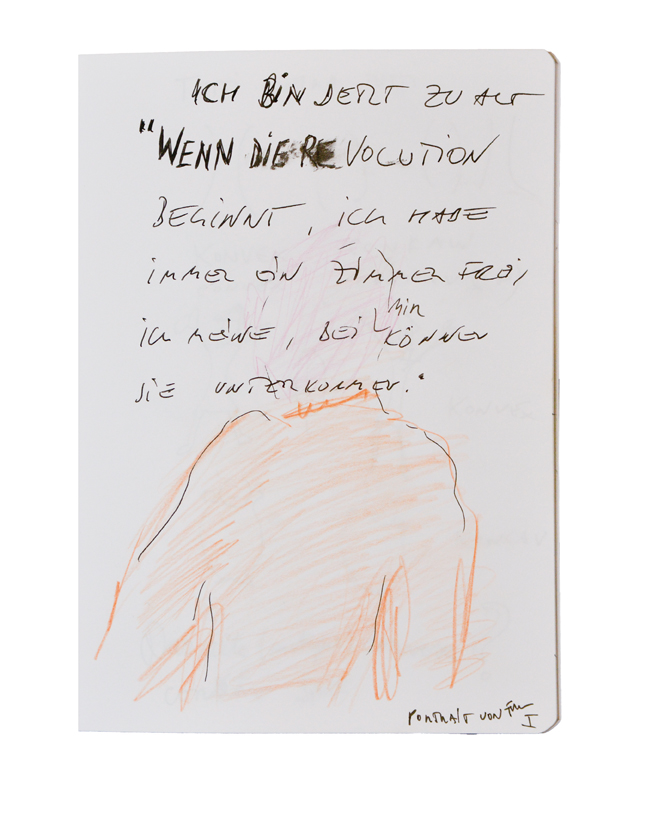 ICH BIN JETZT ZU ALT
"WENN DIE REVOLUTION
BEGINNT, ICH HABE
IMMER EIN ZIMMER FREI,
ICH MEINE, BEI MIR KÖNNEN
SIE UNTERKOMMEN."
PORTRAIT VON
I